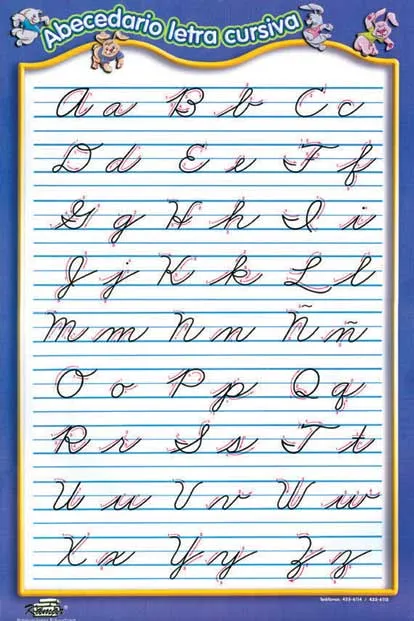 Abecedario letra cursiva
A a B b C c
D d E e F f
G g H h I i
J j K k L l
M m N n Ñ ñ
O o P p Q q
R r S s T t
U u V v W w
X x Y y Z z